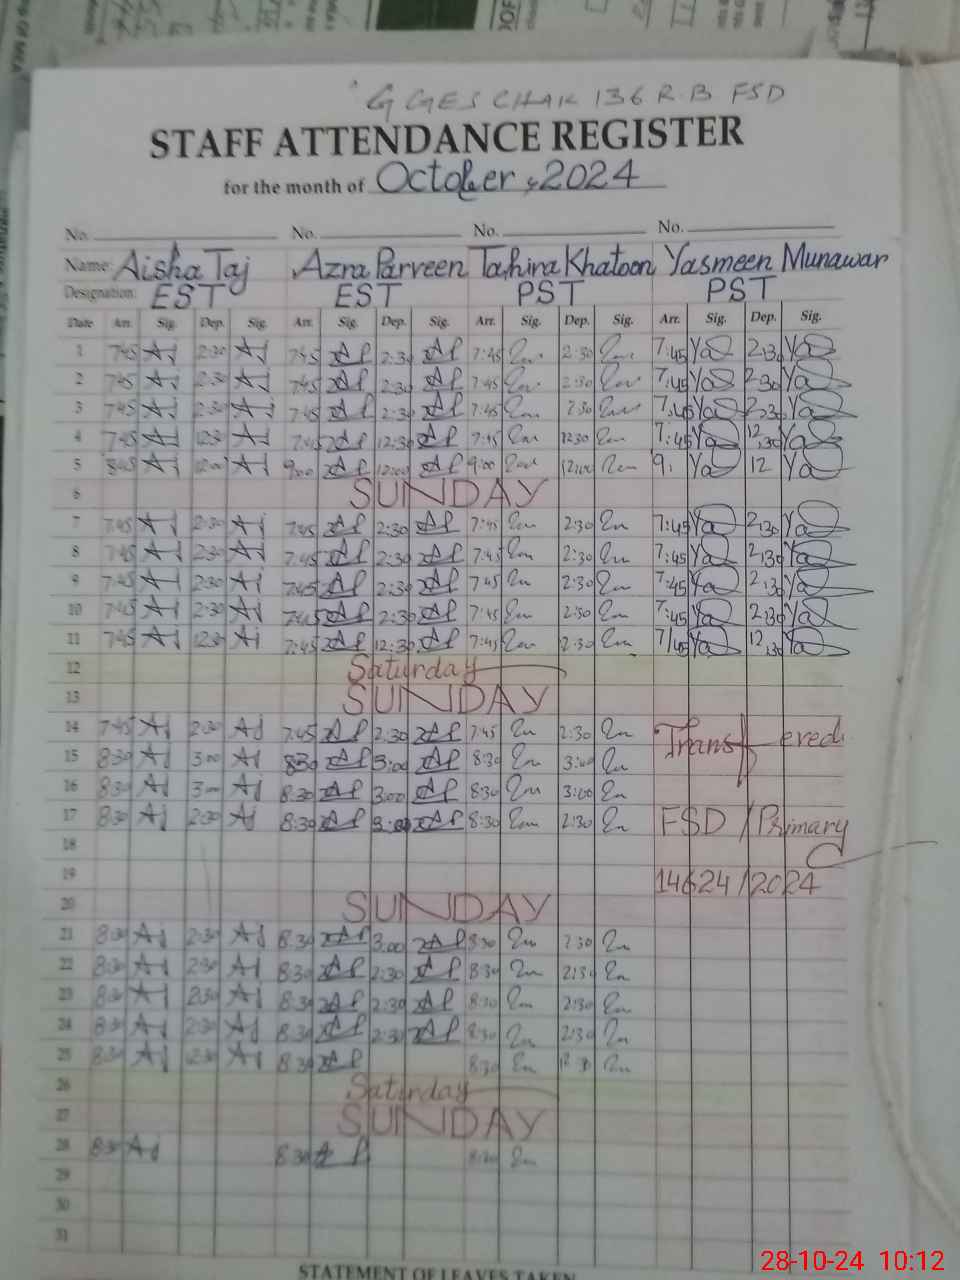 GGES CHAK 136 R.B FSD
STAFF ATTENDANCE REGISTER
for the month of October, 2024
No. No. No. No.
Name: Aisha Taj Azra Parveen Tahira Khatoon Yasmeen Munawar
Designation: EST EST PST PST
Date Arr. Sig. Dep. Sig. Arr. Sig. Dep. Sig. Arr. Sig. Dep. Sig. Arr. Sig. Dep. Sig.
1 7:45 AJ 2:30 AJ 7:45 2:30 7:45 2:30 7:45 Ya 2:30 Ya
2 7:45 AJ 2:30 AJ 7:45 2:30 7:45 2:30 7:45 Ya 2:30 Ya
3 7:45 AJ 2:30 AJ 7:45 2:30 7:45 2:30 7:45 Ya 2:30 Ya
4 7:45 AJ 12:30 AJ 7:45 12:30 7:45 12:30 7:45 Ya 12:30 Ya
5 AJ 12:00 AJ 9:00 12:00 9:00 12:00 9. Ya 12 Ya
6 SUNDAY
7 7:45 AJ 2:30 AJ 7:45 2:30 7:45 2:30 7:45 Ya 2:30 Ya
8 7:45 AJ 2:30 AJ 7:45 2:30 7:45 2:30 7:45 Ya 2:30 Ya
9 7:45 AJ 2:30 AJ 7:45 2:30 7:45 2:30 7:45 Ya 2:30 Ya
10 7:45 AJ 2:30 AJ 7:45 2:30 7:45 2:30 7:45 Ya 2:30 Ya
11 7:45 AJ 12:30 AJ 7:45 12:30 7:45 12:30 7/45 Ya 12:30 Ya
12 Saturday
13 SUNDAY
14 7:45 AJ 2:30 AJ 7:45 2:30 7:45 2:30 Transfered.
15 8:30 AJ 3:00 AJ 8:30 3:00 8:30 3:00
16 8:30 AJ 3:00 AJ 8:30 3:00 8:30 3:00
17 8:30 AJ 2:30 AJ 8:30 3:00 8:30 2:30 FSD / Primary
18
19 14624/2024
20 SUNDAY
21 8:30 AJ 2:30 AJ 8:30 3:00 8:30 2:30
22 8:30 AJ 2:30 AJ 8:30 2:30 8:30 2:30
23 8:30 AJ 2:30 AJ 8:30 2:30 8:30 2:30
24 8:30 AJ 2:30 AJ 8:30 2:30 8:30 2:30
25 8:30 AJ 12:30 AJ 8:30 8:30 12:30
26 Saturday
27 SUNDAY
28 8:30 AJ 8:30 8:30
29
30
31
STATEMENT OF LEAVES TAKEN
28-10-24 10:12